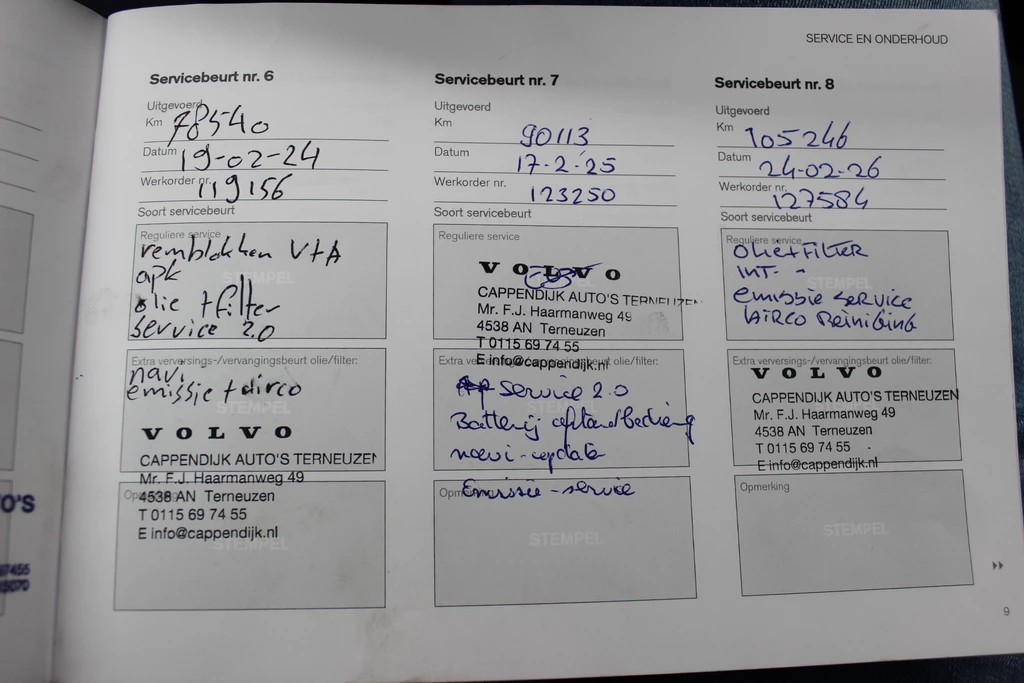 SERVICE EN ONDERHOUD
Servicebeurt nr. 6
Uitgevoerd
Km 78540
Datum 19-02-24
Werkorder nr. 119156
Soort servicebeurt
Reguliere service
remblokken V+A
apk
STEMPEL
olie + filter
service 2.0
Extra verversings-/vervangingsbeurt olie/filter:
navi
emissie + airco
STEMPEL
VOLVO
CAPPENDIJK AUTO'S TERNEUZEN
Mr. F.J. Haarmanweg 49
4538 AN Terneuzen
T 0115 69 74 55
E info@cappendijk.nl
STEMPEL
Servicebeurt nr. 7
Uitgevoerd
Km 90113
Datum 17-2-25
Werkorder nr. 123250
Soort servicebeurt
Reguliere service
VOLVO
CAPPENDIJK AUTO'S TERNEUZEN
Mr. F.J. Haarmanweg 49
4538 AN Terneuzen
T 0115 69 74 55
E info@cappendijk.nl
Extra verversings-/vervangingsbeurt olie/filter:
Service 2.0
Batterij afstandbediening
navi-update
Opmerking
Emissie-service
STEMPEL
Servicebeurt nr. 8
Uitgevoerd
Km 105246
Datum 24-02-26
Werkorder nr. 127584
Soort servicebeurt
Reguliere service
Olie+FILTER
INT. -
emissie service
AiRCO Reiniging
Extra verversings-/vervangingsbeurt olie/filter:
VOLVO
CAPPENDIJK AUTO'S TERNEUZEN
Mr. F.J. Haarmanweg 49
4538 AN Terneuzen
T 0115 69 74 55
E info@cappendijk.nl
Opmerking
STEMPEL
9
O'S